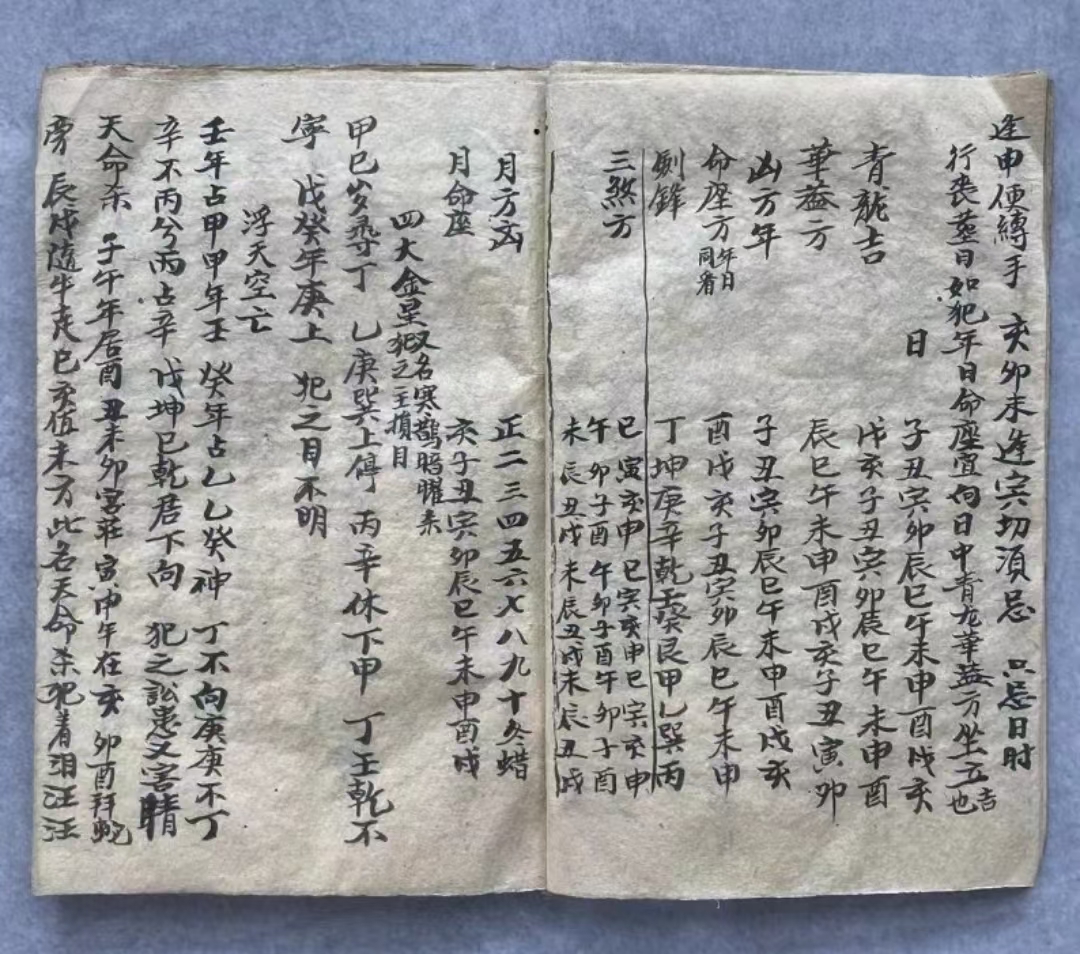 逢申便縛手 亥卯未逢寅切須忌 只忌日时
行丧葬日如犯年日命座宜向日中青龙華盖方坐立吉也
青龍吉 日 子丑寅卯辰巳午未申酉戌亥
華盖方 戌亥子丑寅卯辰巳午未申酉
凶方年 辰巳午未申酉戌亥子丑寅卯
命座方年日同看 子丑寅卯辰巳午未申酉戌亥
劍鋒 酉戌亥子丑寅卯辰巳午未申
三煞方 丁坤庚辛乾壬癸艮甲乙巽丙
巳寅亥申巳寅亥申巳寅亥申
午卯子酉午卯子酉午卯子酉
未辰丑戌未辰丑戌未辰丑戌
月方凶 正二三四五六七八九十冬蜡
月命座 亥子丑寅卯辰巳午未申酉戌
四大金星又名寒鵲暗曜杀犯之主損目
甲巳岁尋丁 乙庚巽上停 丙辛休下甲 丁壬乾不
寧 戊癸年庚上 犯之目不明
浮天空亡
壬年占甲甲年壬 癸年占乙乙癸神 丁不向庚庚不丁
辛不丙兮丙占辛 戊坤巳乾居下向 犯之訟患又害睛
天命杀 子午年居酉 丑未卯宮莊 寅申午在亥 卯酉拜蛇
旁 辰戌隨牛走巳亥值未方此名天命杀犯着泪汪汪